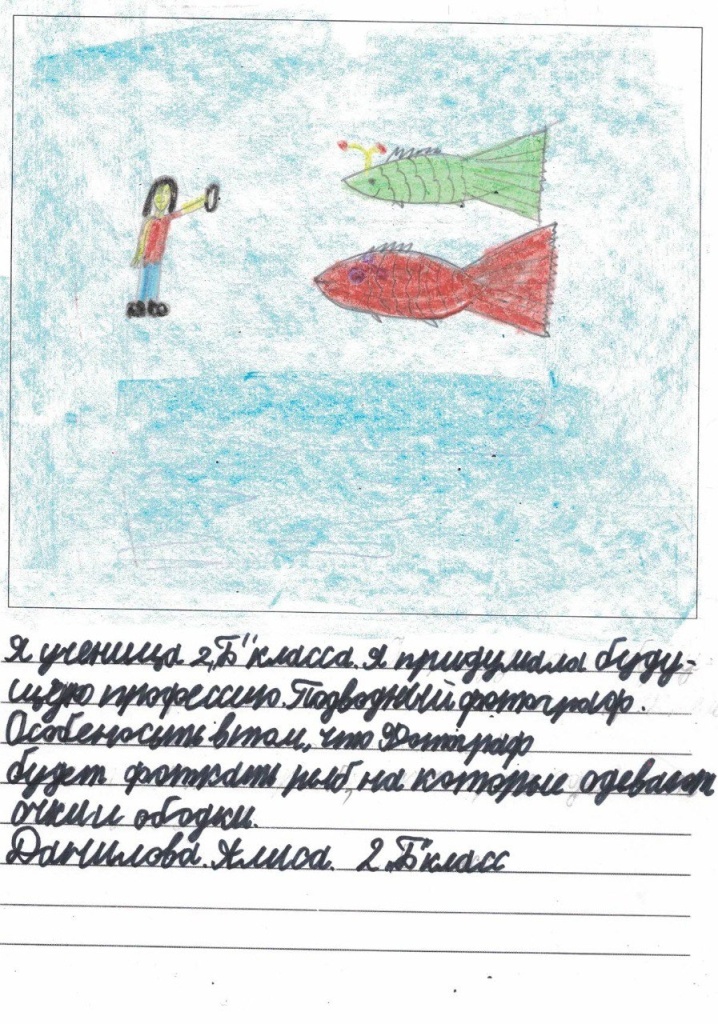 Я ученица 2 „Б" класса. Я придумала буду-
щую профессию. Подводный фотограф.
Особеность в том, что Фотограф
будет фоткать рыб, на которые одевают
очки и ободки.
Данилова. Алиса. 2 „Б" класс